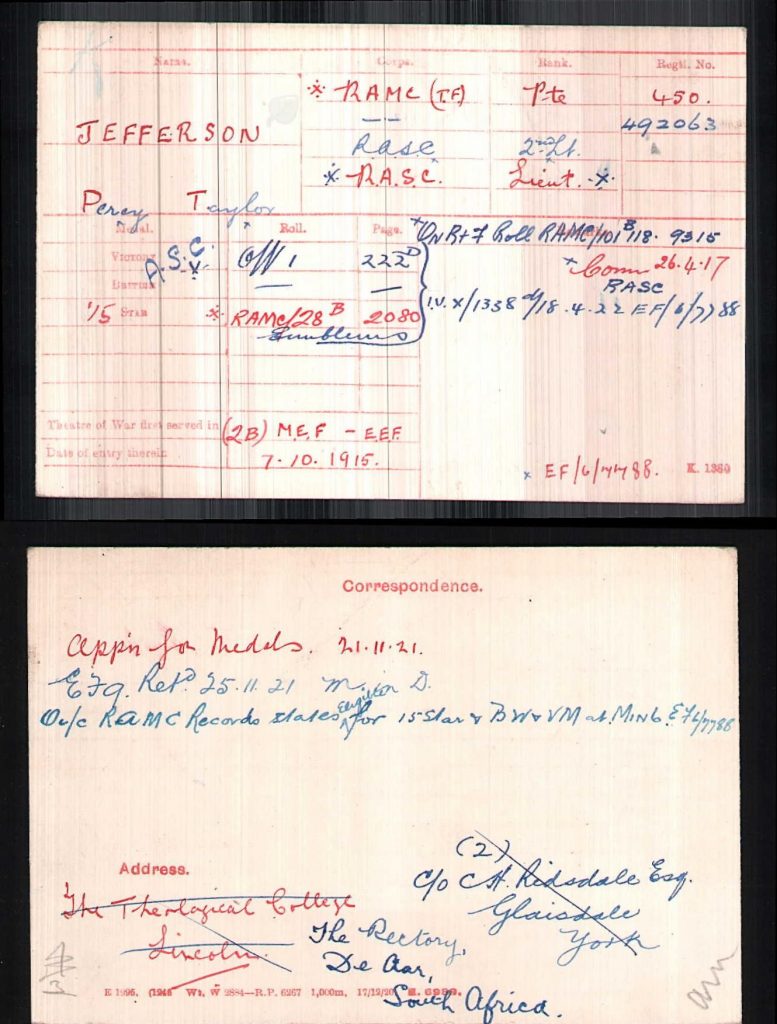 Name. Corps. Rank. Regtl. No.
* RAMC (T.F) Pte 450.
— — 492063
JEFFERSON RASC 2nd Lt.
* R.A.S.C. Lieut. *
Percy Taylor
Medal. Roll. Page.
Victory A.S.C. Off 1 222D
British — —
'15 Star * RAMC/28 B 2080
Emblems
+ On R+F Roll RAMC/101 B 118. 9315
* Comm 26.4.17
RASC
I.V. X/1338 d/18.4.22 EF/6/7788
Theatre of War first served in (2B) M.E.F - E.E.F.
Date of entry therein 7.10.1915.
x EF/6/7788. K. 1380
Correspondence.
App'n for Medals. 21.11.21.
EF9. Retd 25.11.21 D.
O i/c RAMC Records states for 15 Star & BW & VM at EF 6/7788
Address.
The Theological College
Lincoln.
(2)
c/o C.H. Ridsdale Esq.
Glaisdale
York
The Rectory,
De Aar,
South Africa.
E 1995, Wt. W 2884—R.P. 6267 1,000m. 17/12/20